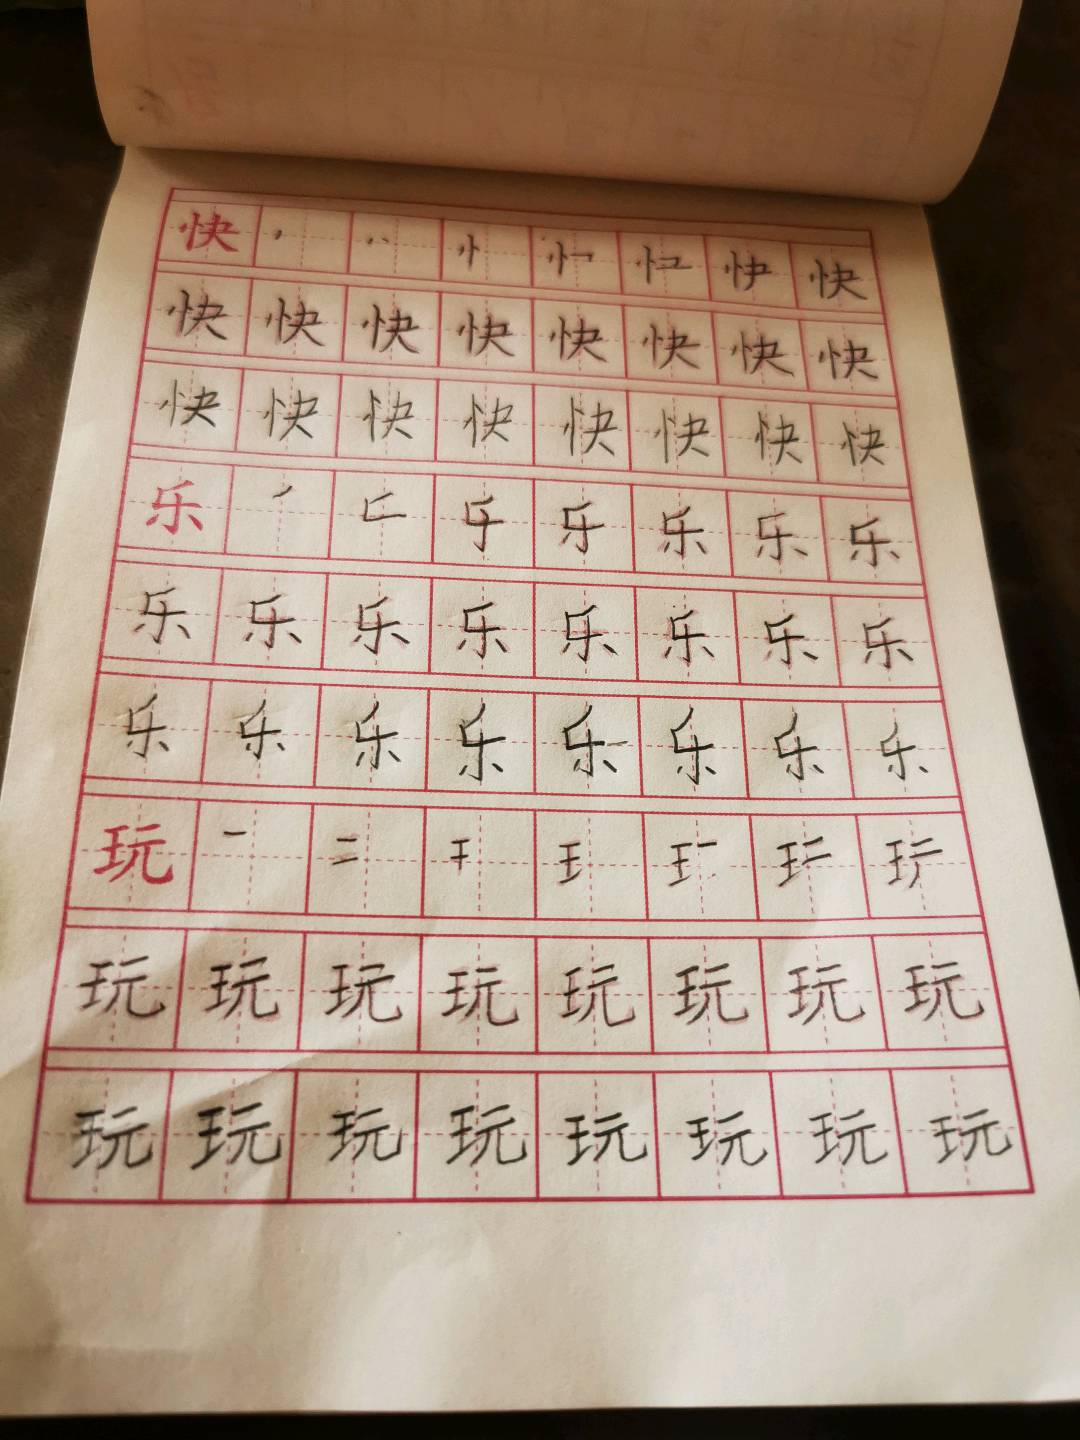 快 丶 丶丶 忄 忄㇕ 忄コ 快 快
快 快 快 快 快 快 快 快
快 快 快 快 快 快 快 快
乐 乐 乐 乐 乐
乐 乐 乐 乐 乐 乐 乐 乐
乐 乐 乐 乐 乐 乐 乐 乐
玩 一 二 干 王
玩 玩 玩 玩 玩 玩 玩 玩
玩 玩 玩 玩 玩 玩 玩 玩